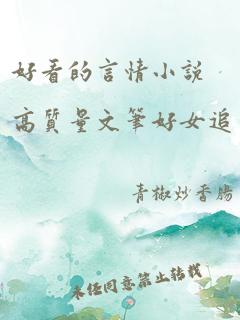 好看的言情小説
高質量文筆好女追
青椒炒香腸
未经同意禁止转载